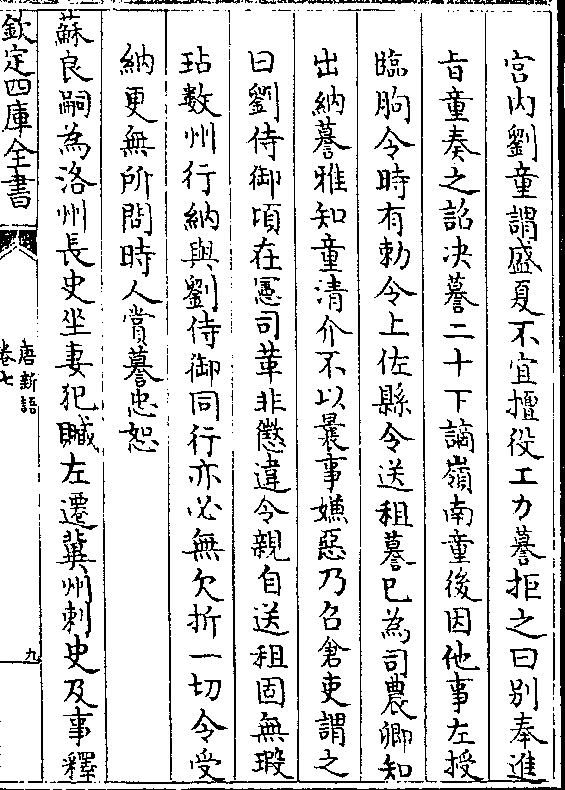 宫内劉童謂盛夏不宜擅役工力謩拒之曰别奉進
旨童奏之詔决謩二十下謫嶺南童後因他事左授
臨朐令時有勅令上佐縣令送租謩已為司農卿知
出納謩雅知童清介不以曩事嫌惡乃召倉吏謂之
曰劉侍御頃在憲司革非懲違令親自送租固無瑕
玷数州行納與劉侍御同行亦必無欠折一切令受
納更無所問時人賞謩忠恕
蘇良嗣為洛州長史坐妻犯贓左遷冀州刺史及事釋
欽定四庫全書
唐新語
卷七
九